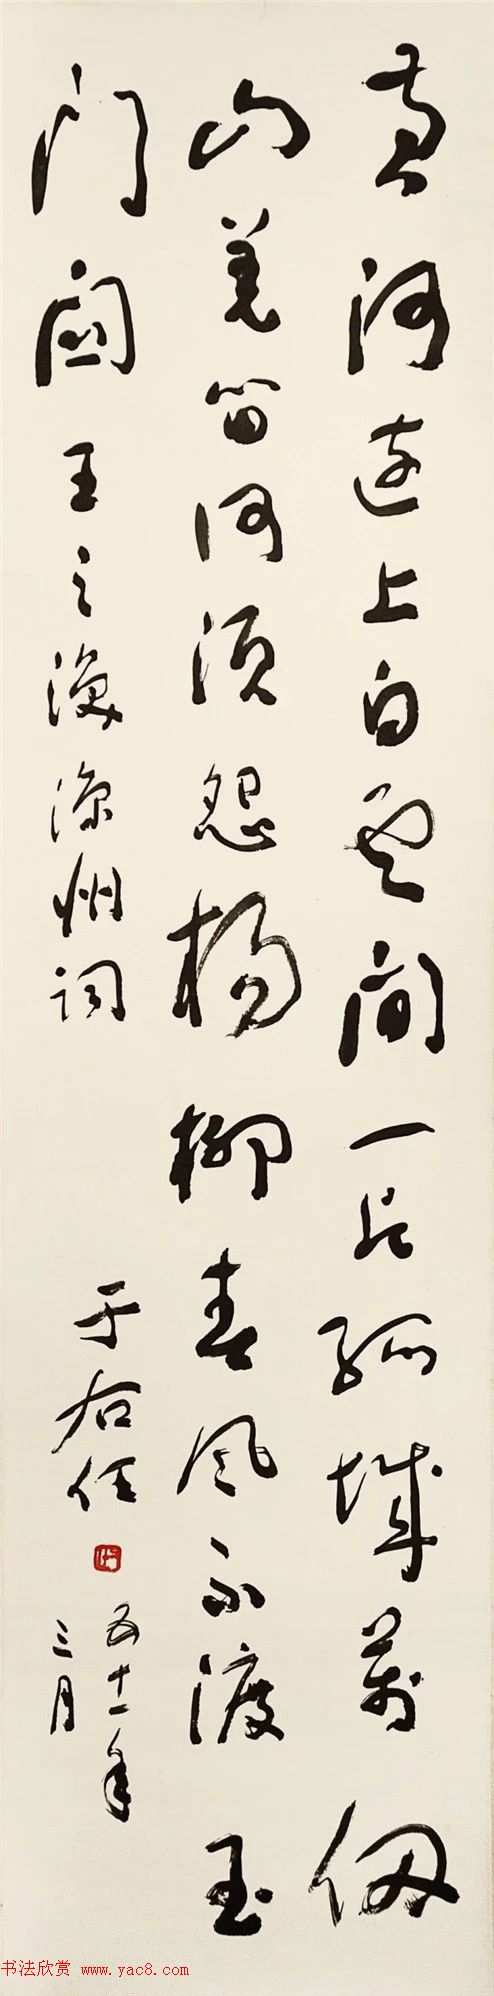 黄河远上白云间一片孤城万仞
山羌笛何须怨杨柳春风不渡玉
门关 王之涣凉州词
于右任
五十一年
三月
书法欣赏 www.yac8.com